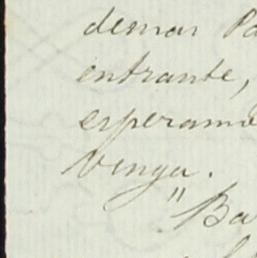 demas Pa
entrante,
esperamo
venga.
" Ba